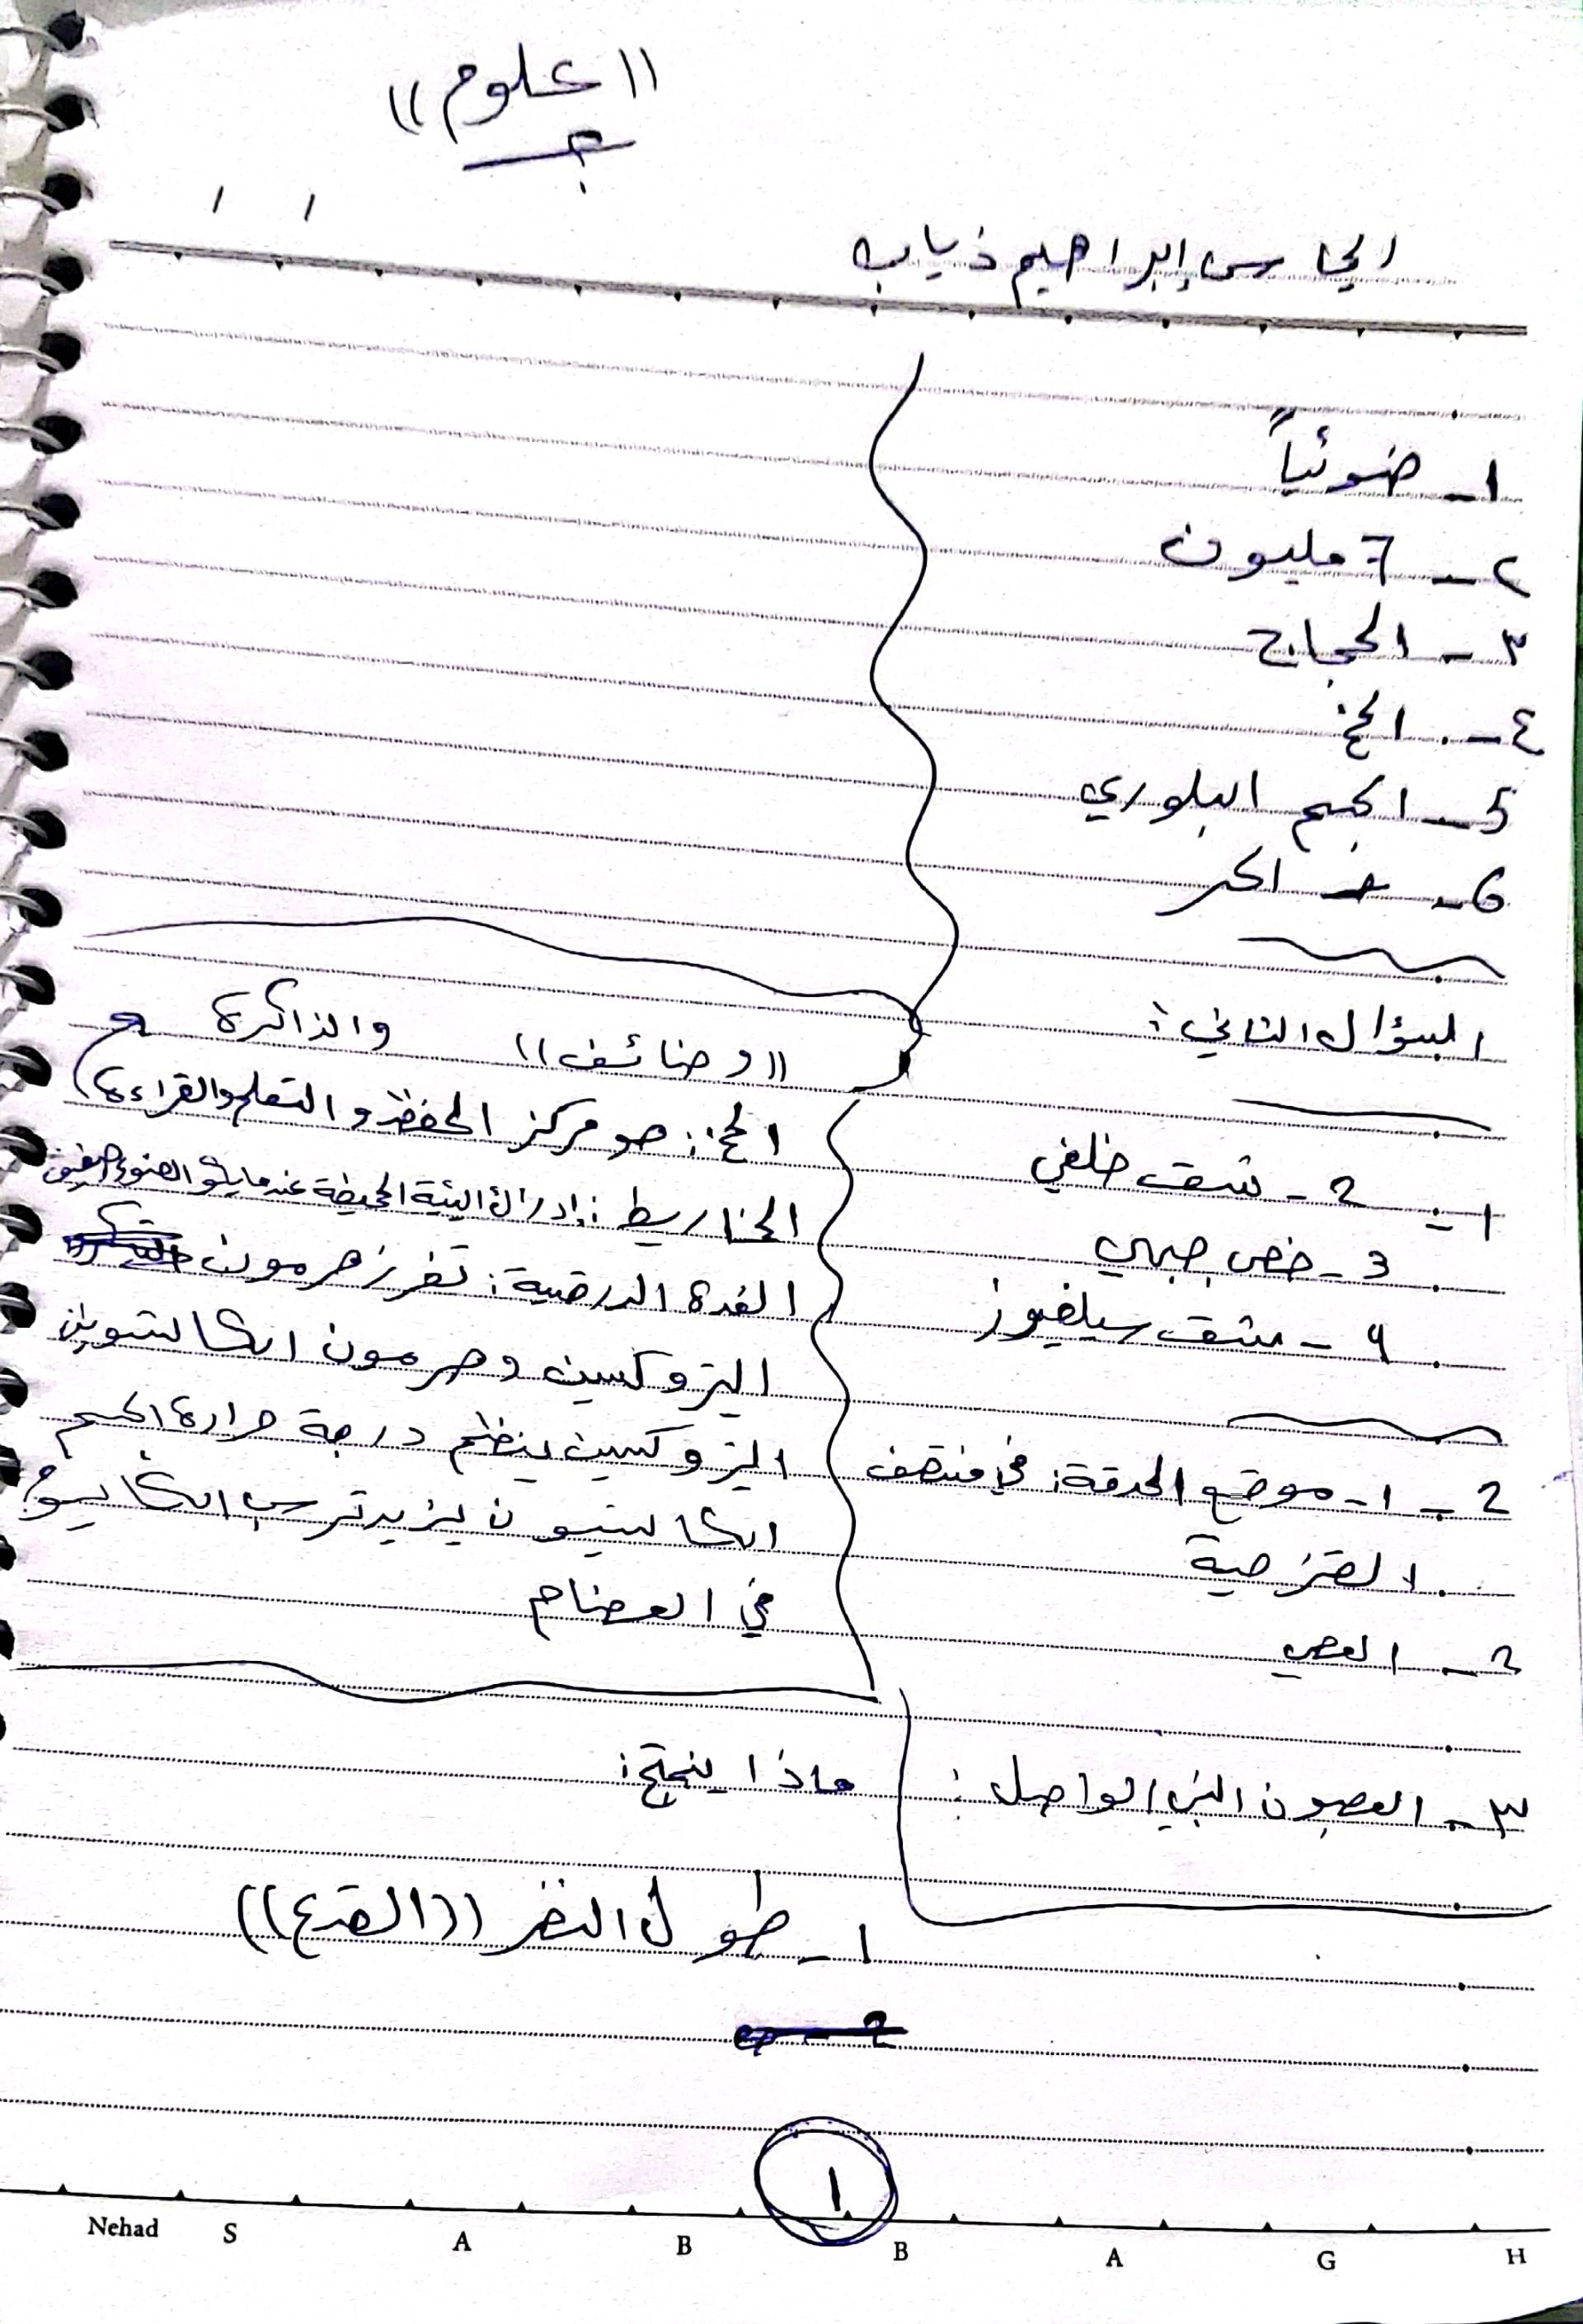 ((علوم))
الحارس إبراهيم ذياب
١- ضوئياً
٢- ٦ مليون
٣- الحجاج
٤- المخ
5- الجسم البلوري
6- الحر
السؤال الثاني:
١- 2- شق خلفي
3- فص جبهي
٩- شق سيلفيوز
2- ١- موقع الحدقة: في منتصف
القزحية
2- العصي
٣- العصبون البيني الواصل:
((وضائف)) والذاكرة
المخ: هو مركز الحفظ و التعلم والقراءة
المخاريط: إدراك البيئة المحيطة عندما يكون الضوء ضعيف
الغدة الدرقية: تفرز هرمون
التروكسين وهرمون الكالستونين
التروكسين ينظم درجة حرارة الجسم
الكالستيون يزيد ترسب الكالسيوم
في العضام
ماذا ينتج:
١- طول النضر ((القدع))
١
Nehad S A B B A G H